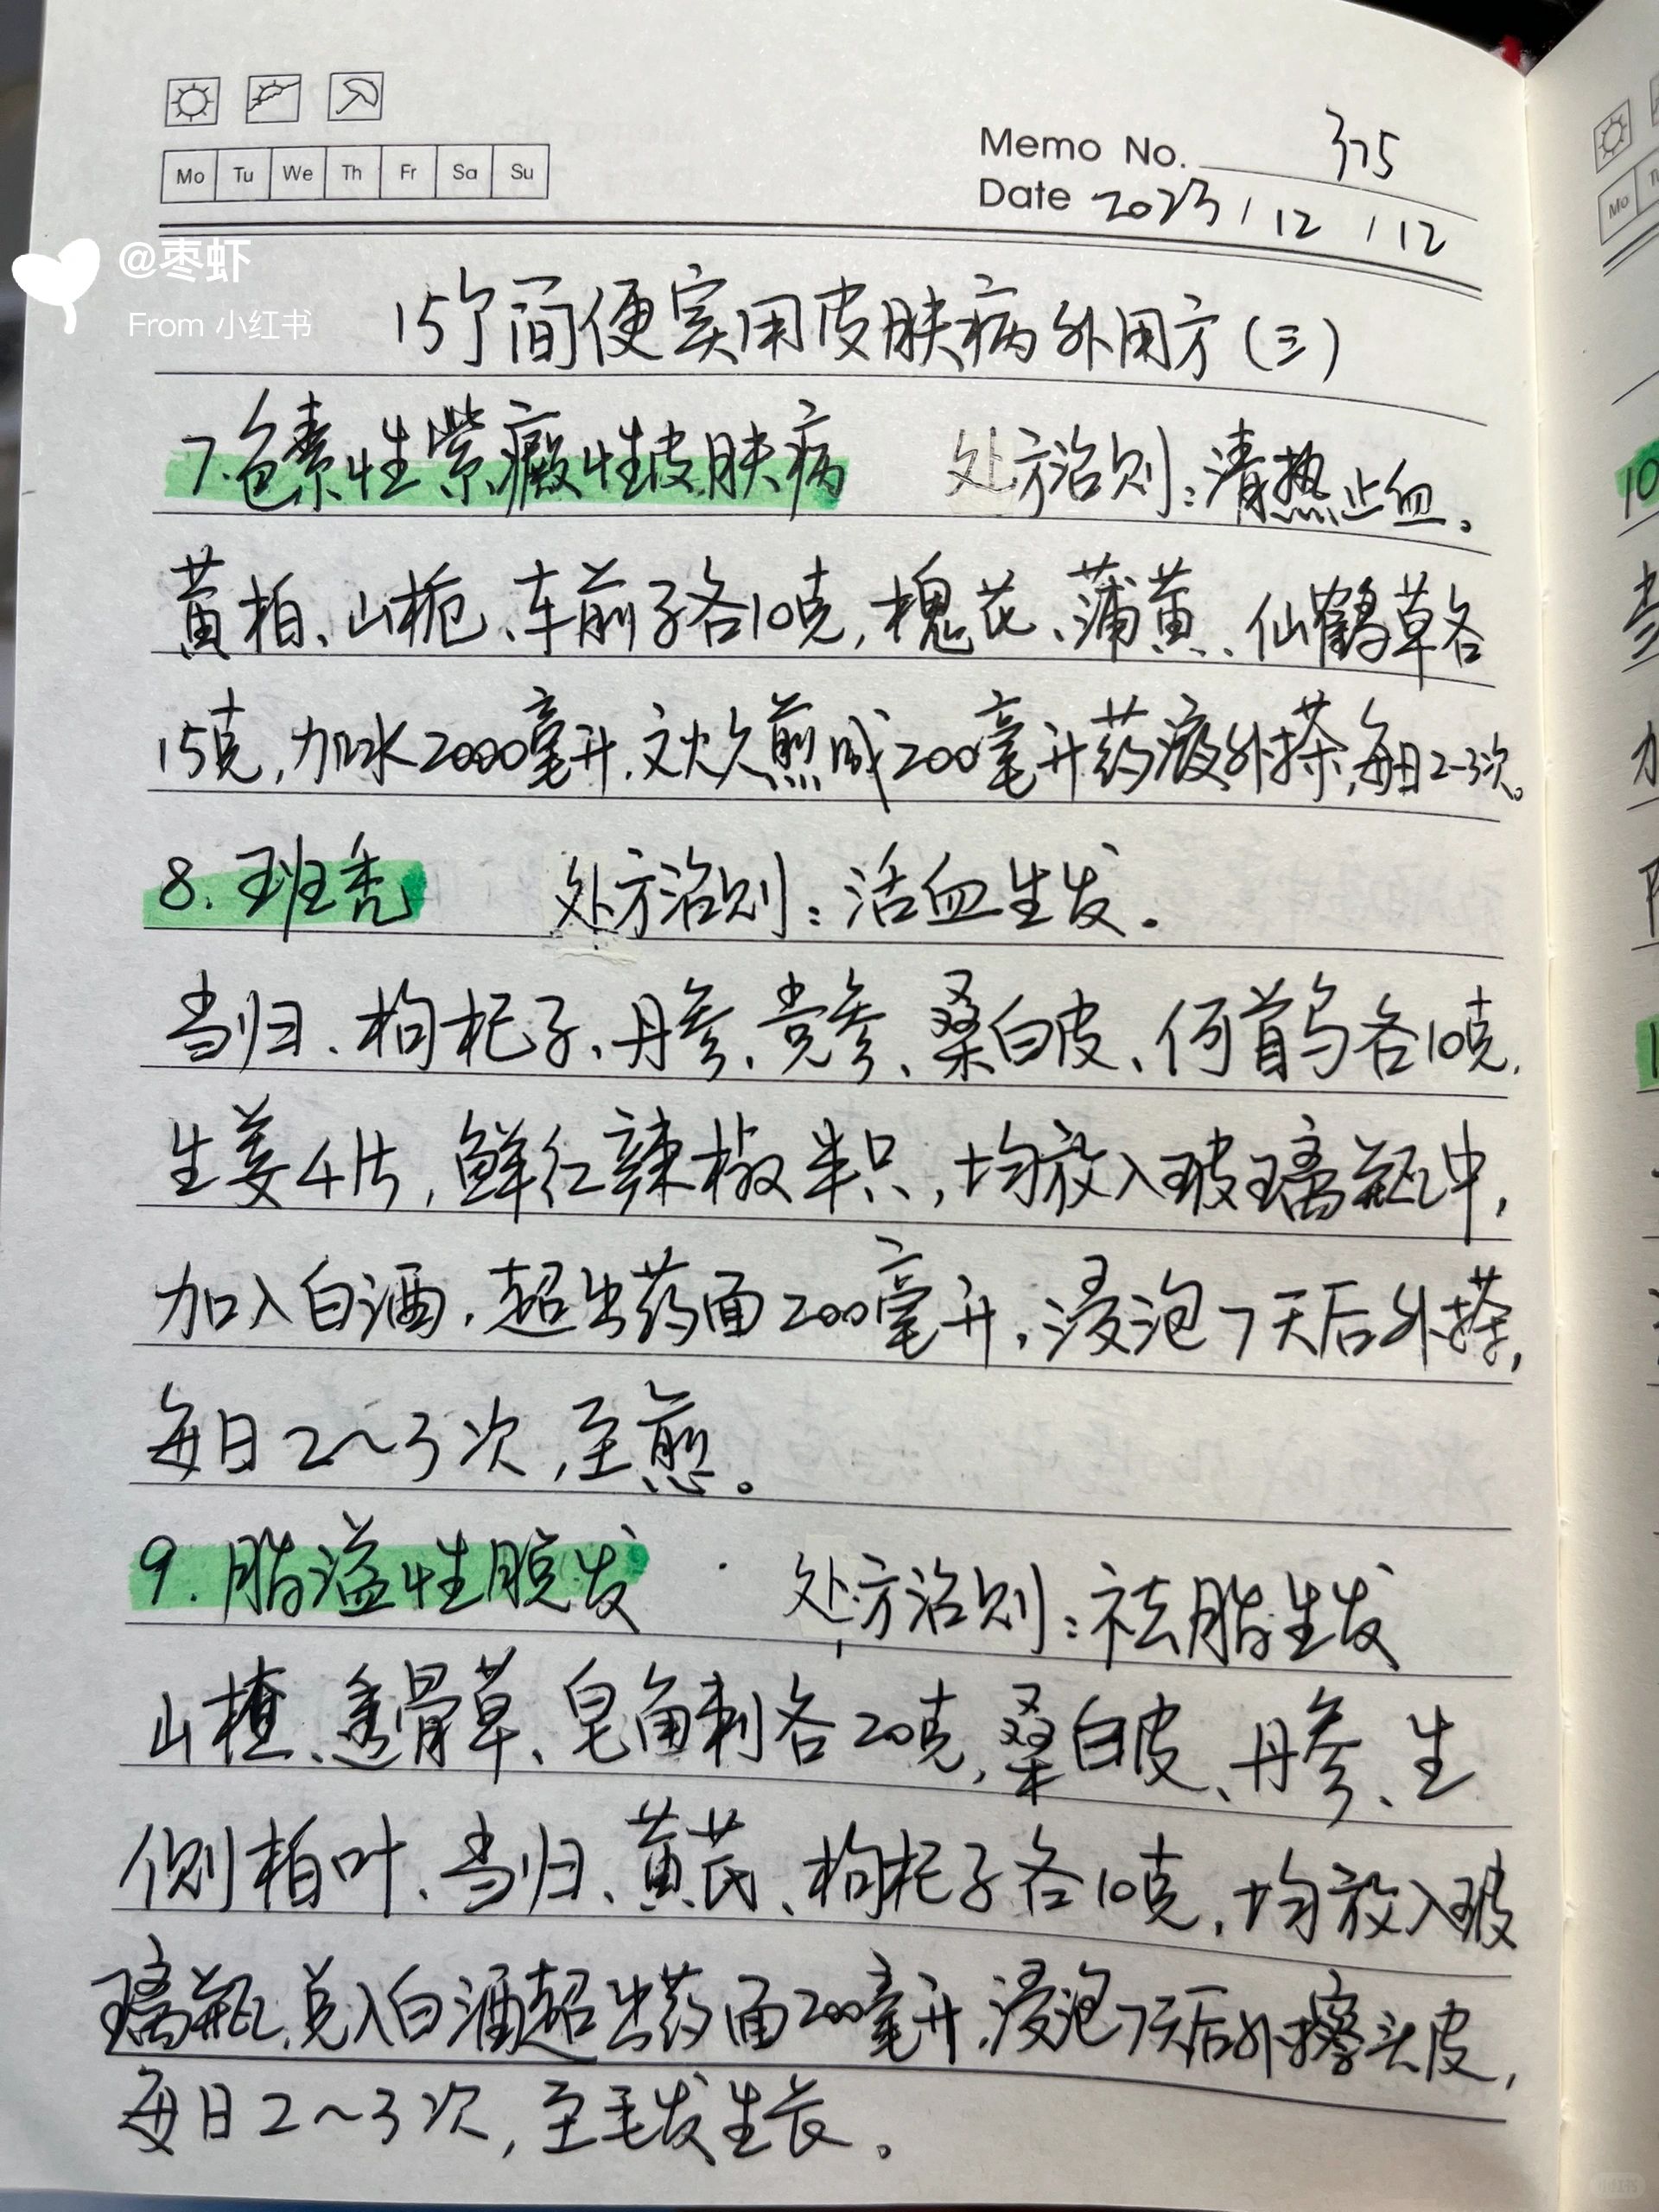 Mo Tu We Th Fr Sa Su
Memo No. 375
Date 2023/12/12
@枣虾
From 小红书
15个简便实用皮肤病外用方(三)
7.色素性紫癜性皮肤病 处方治则:清热止血。
黄柏、山栀、车前子各10克,槐花、蒲黄、仙鹤草各
15克,加水2000毫升.文火久煎成200毫升药液外搽,每日2-3次。
8.斑秃 处方治则:活血生发.
当归、枸杞子、丹参、党参、桑白皮、何首乌各10克,
生姜4片,鲜红辣椒半只,均放入玻璃瓶中,
加入白酒.超出药面200毫升,浸泡7天后外搽,
每日2~3次,至愈。
9.脂溢性脱发 处方治则:祛脂生发
山楂、透骨草、皂角刺各20克,桑白皮、丹参、生
侧柏叶、当归、黄芪、枸杞子各10克,均放入玻
璃瓶,兑入白酒超出药面200毫升,浸泡7天后外擦头皮,
每日2~3次,至毛发生长。
10